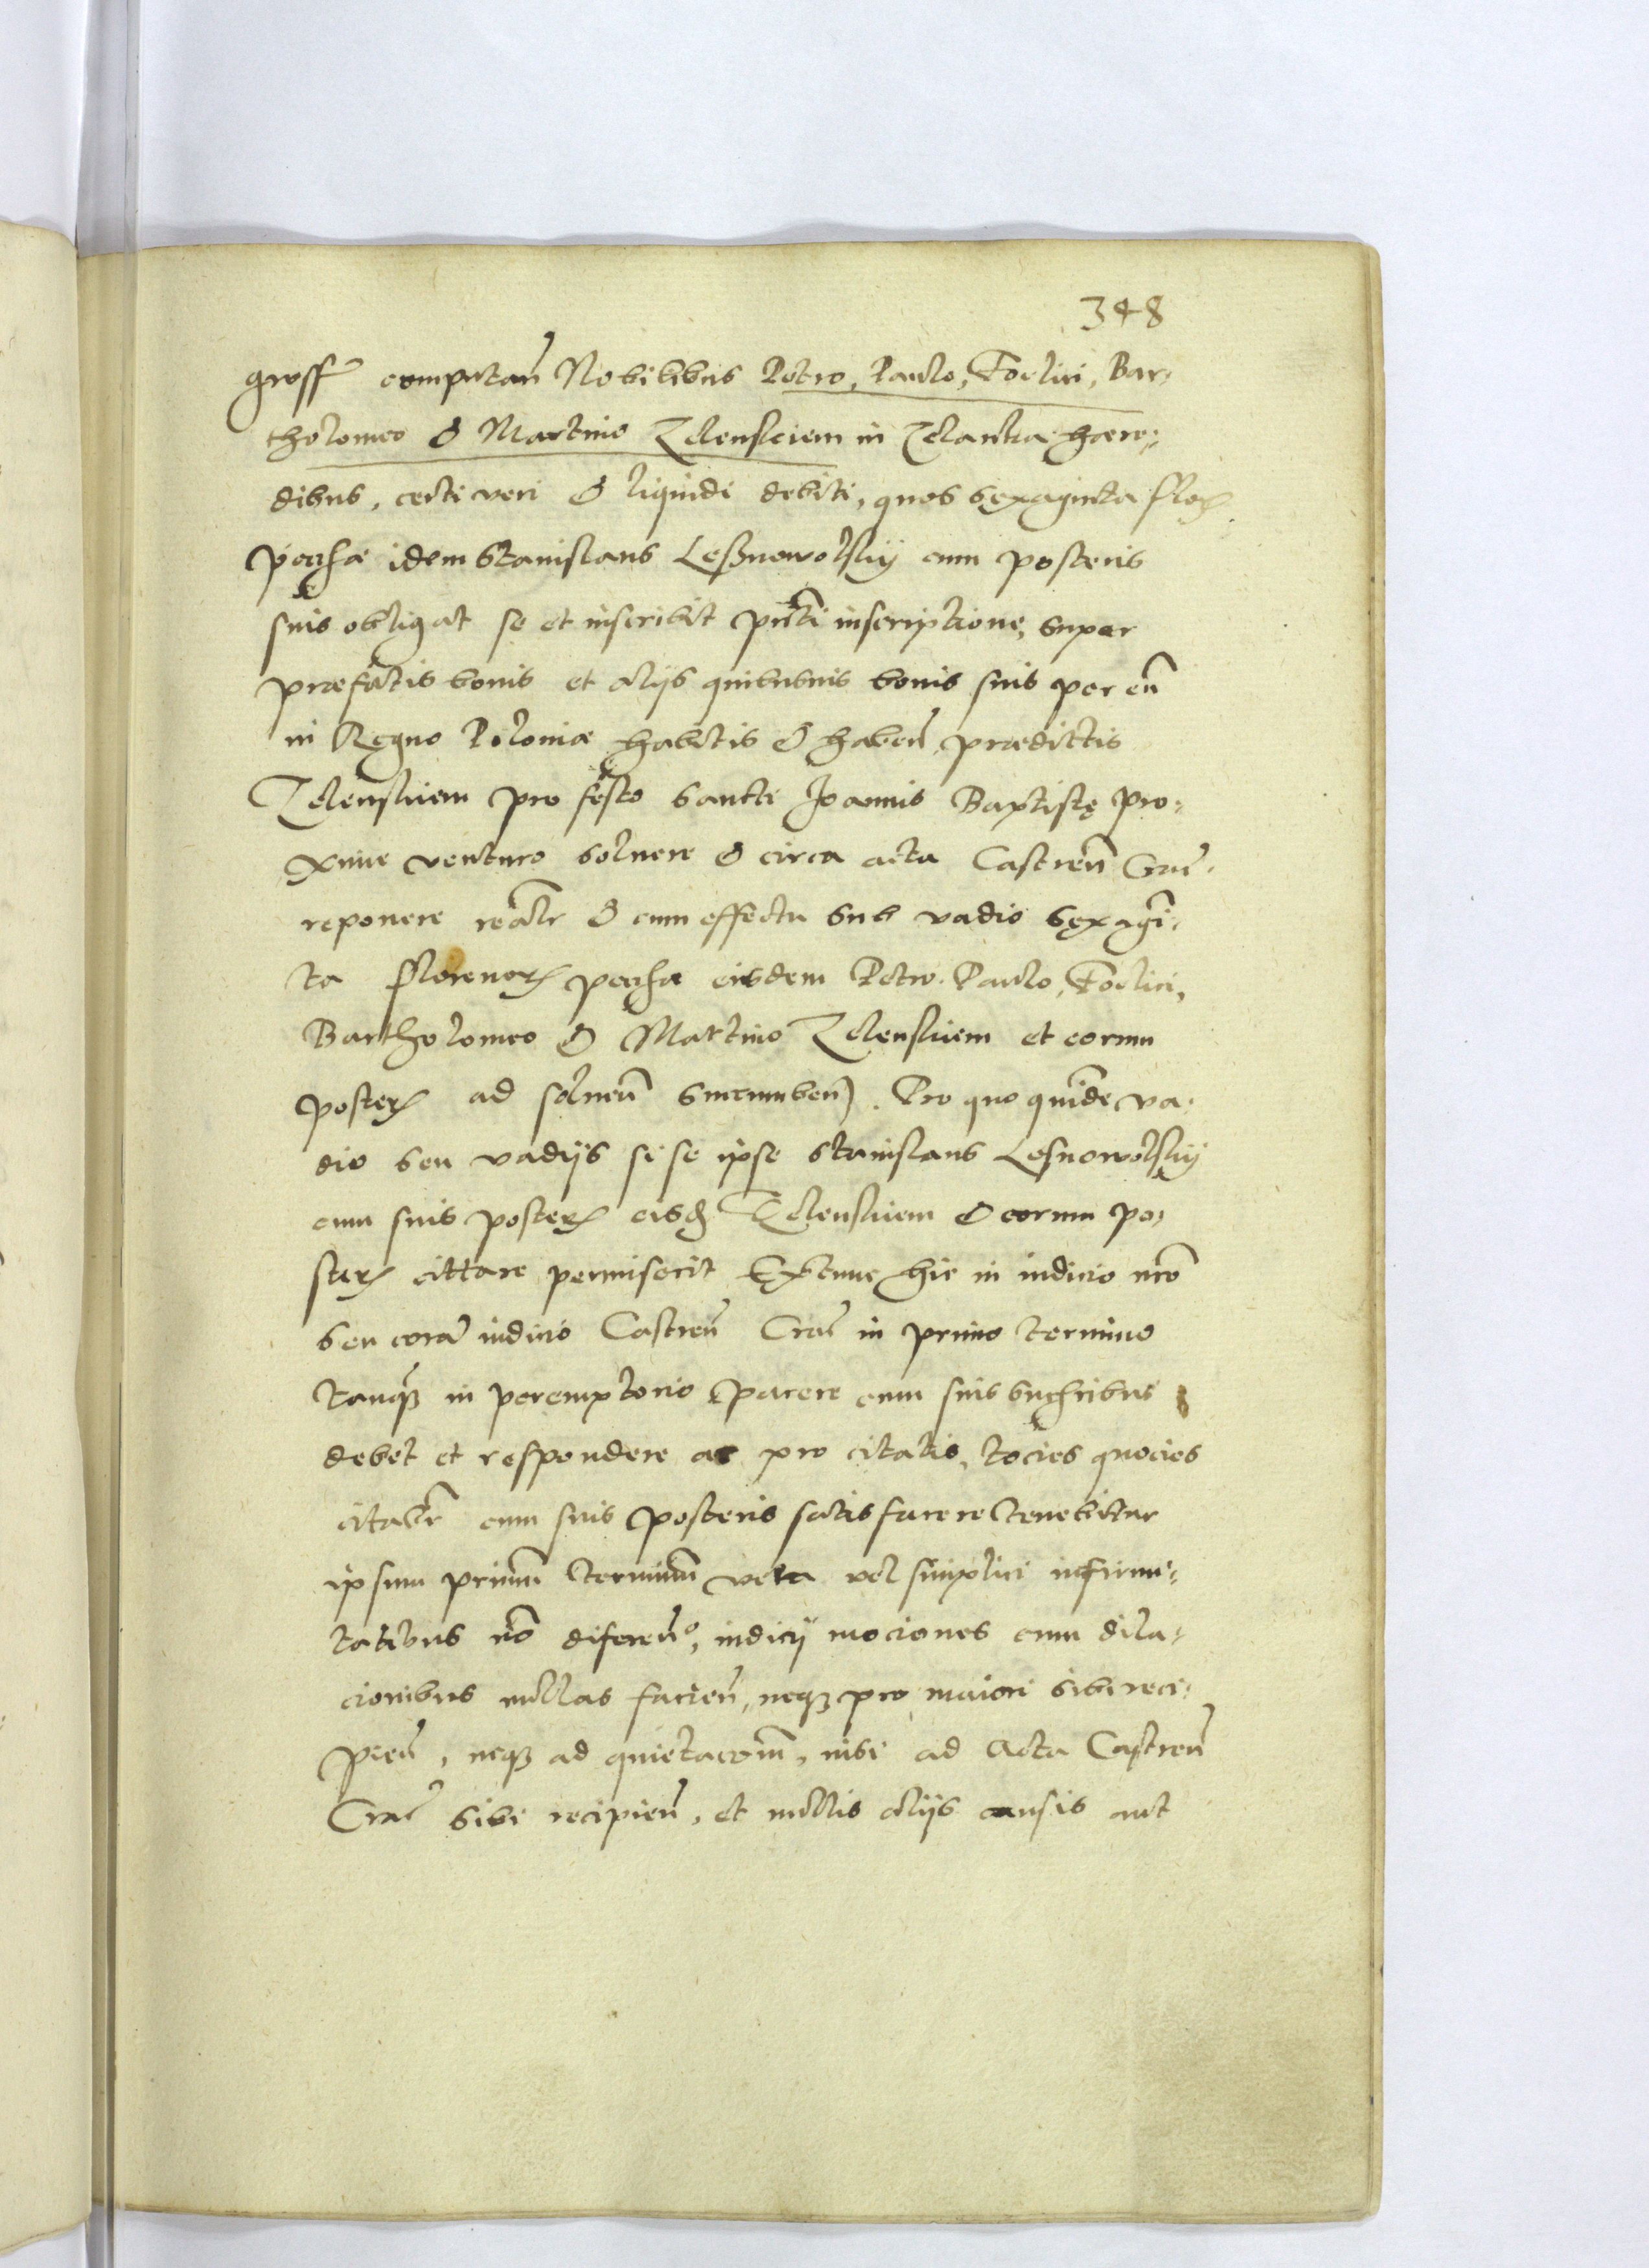 348
gross computan Nobilibus Petro, Paulo, Foelici, Bar-
tholomeo & Martino Zelensciem in Zelanka haere-
dibus, certi veri & liquidi debiti, quos sexaginta flor
pecuniae idem Stanislaus Leßnowolskij cum posteris
suis obligat se et inscribit pnti inscriptione, super
praefatis bonis et alijs quibusuis bonis suis per eu
in Regno Poloniae habitis & haben praedictis
Zelensciem pro festo Sancti Joannis Baptistę pro-
xime venturo soluere & circa acta Castren Crac
reponere realr & cum effectu sub vadio sexagi-
ta florenor pecuniae eisdem Petro Paulo, Foelici,
Bartholomeo & Martino Zelensciem et eorum
poster ad soluen succumben. Pro quo quide va-
dio seu vadijs si se ipse Stanislaus Lesnowolskij
cum suis poster eisd Zelensciem & eorum po-
ster cittare permiserit Extunc hic in iudicio nro
seu cora iudicio Castren Crac in primo termino
tanq in peremptorio parere cum suis
debet et respondere ac pro citatis, tocies quocies
citatr cum suis posteris satisfacere tenebitur
ipsum primum terminum vera vel simplici infirmi-
tatibus no diferen, iudicij mociones cum dila-
cionibus nullas facien, neq pro maiori sibi reci-
pien, neq ad quietacom, nisi ad Acta Castren
Crac sibi recipien, et nullis alijs causis aut